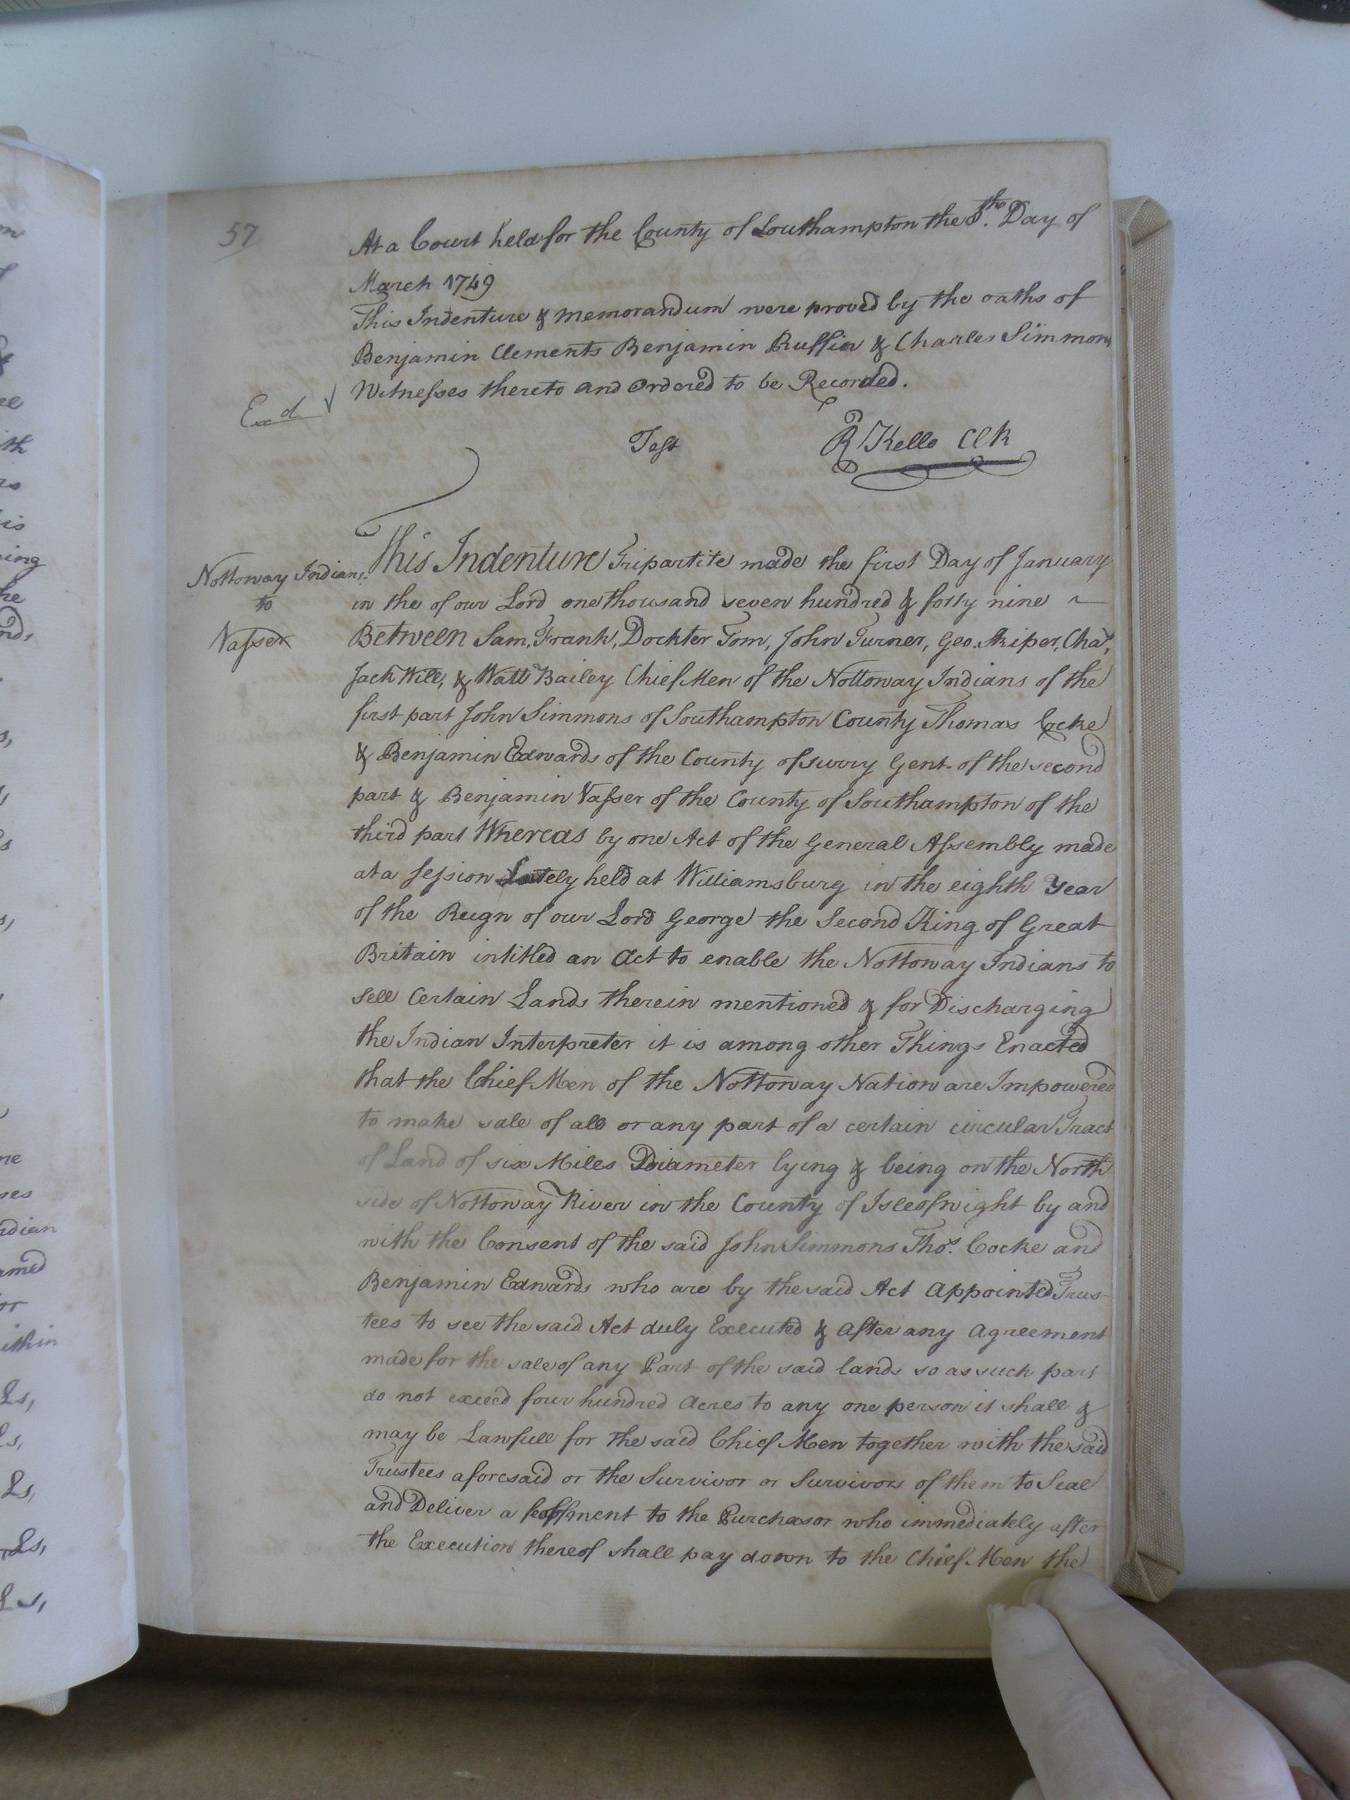 57
At a Court held for the County of Southampton the 8th. Day of
March 1749
This Indenture & Memorandum were proved by the oaths of
Benjamin Clements Benjamin Ruffin & Charles Simmons
Witnesses thereto and Ordered to be Recorded.
Exd
Test
R Kello ClK
Nottoway Indians
to
Vasser
This Indenture Tripartite made the first Day of January
in the of our Lord one thousand seven hundred & forty nine
Between Sam, Frank, Dockter Tom, John Turner, Geo. Skiper, Chas,
Jack Will, & Watt Bailey Chief Men of the Nottoway Indians of the
first part John Simmons of Southampton County Thomas Cocke
& Benjamin Edwards of the County of Surry Gent. of the second
part & Benjamin Vasser of the County of Southampton of the
third part Whereas by one Act of the General Assembly made
at a Session Lately held at Williamsburg in the eighth Year
of the Reign of our Lord George the Second King of Great
Britain intitled an Act to enable the Nottoway Indians to
sell Certain Lands therein mentioned & for Discharging
the Indian Interpreter it is among other Things Enacted
that the Chief Men of the Nottoway Nation are Impowered
to make sale of all or any part of a certain circular Tract
of Land of six Miles Diameter lying & being on the North
side of Nottoway River in the County of Isleofwight by and
with the Consent of the said John Simmons Thos. Cocke and
Benjamin Edwards who are by the said Act Appointed Trus-
tees to see the said Act duly Executed & after any Agreement
made for the sale of any Part of the said lands so as such part
do not exceed four hundred Acres to any one person it shall &
may be Lawfull for the said Chief Men together with the said
Trustees aforesaid or the Survivor or Survivors of them to Seal
and Deliver a feoffment to the Purchasor who immediately after
the Execution thereof shall pay down to the Chief Men the